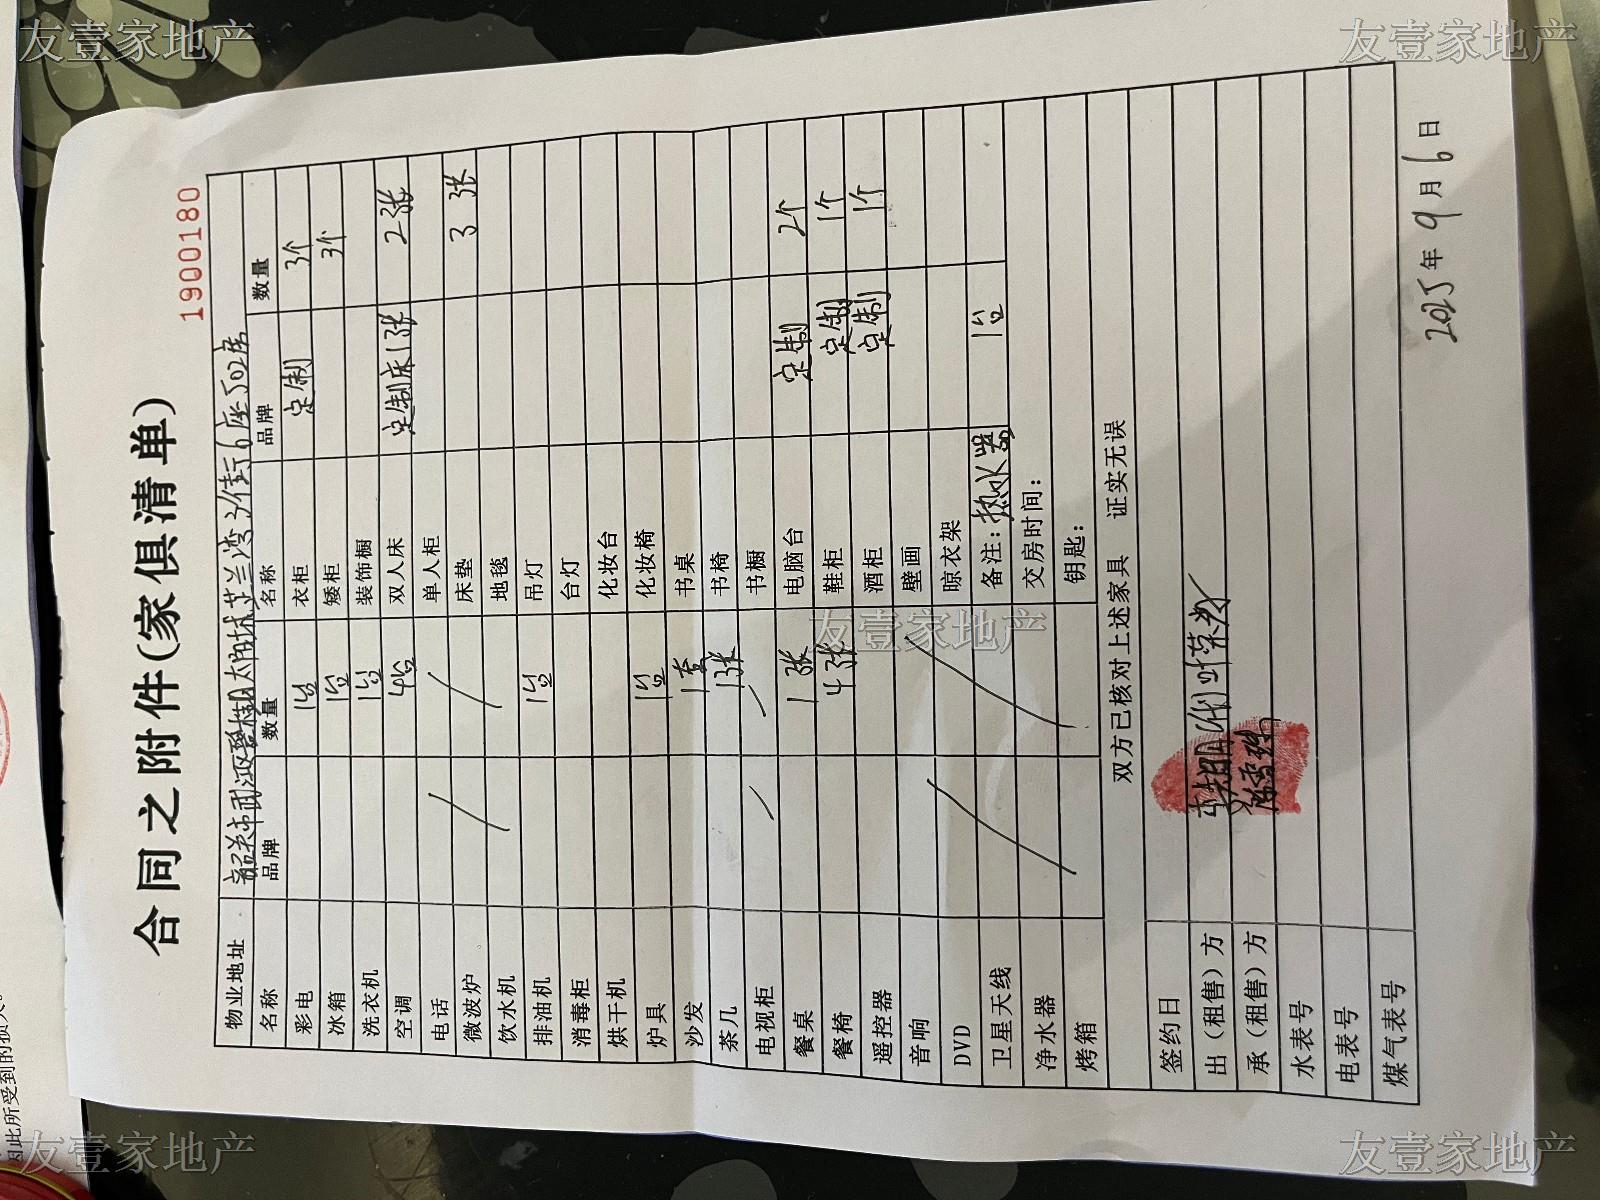 友壹家地产
友壹家地产
合同之附件(家俱清单)
1900180
物业地址 韶关市武江区碧桂园太阳城芷兰湾3街6座502房
名称 品牌 数量 名称 品牌 数量
彩电 1台 衣柜 定制 3个
冰箱 1台 矮柜 3个
洗衣机 1台 装饰橱
空调 4台 双人床 定制床1张 2张
电话 单人柜
微波炉 床垫 3 3张
饮水机 地毯
排油机 1台 吊灯
消毒柜 台灯
烘干机 化妆台
炉具 1台 化妆椅
沙发 1套 书桌
茶几 1张 书椅
电视柜 书橱
餐桌 1张 电脑台 定制 2个
餐椅 4张 鞋柜 定制 1个
遥控器 酒柜 定制 1个
音响 壁画
DVD 晾衣架
卫星天线 备注：热水器 1台
净水器 交房时间：
烤箱 钥匙：
双方已核对上述家具 证实无误
签约日
出（租售）方
承（租售）方
水表号
电表号
煤气表号
2025年9月6日
因此所受到的损失。
友壹家地产
友壹家地产
友壹家地产